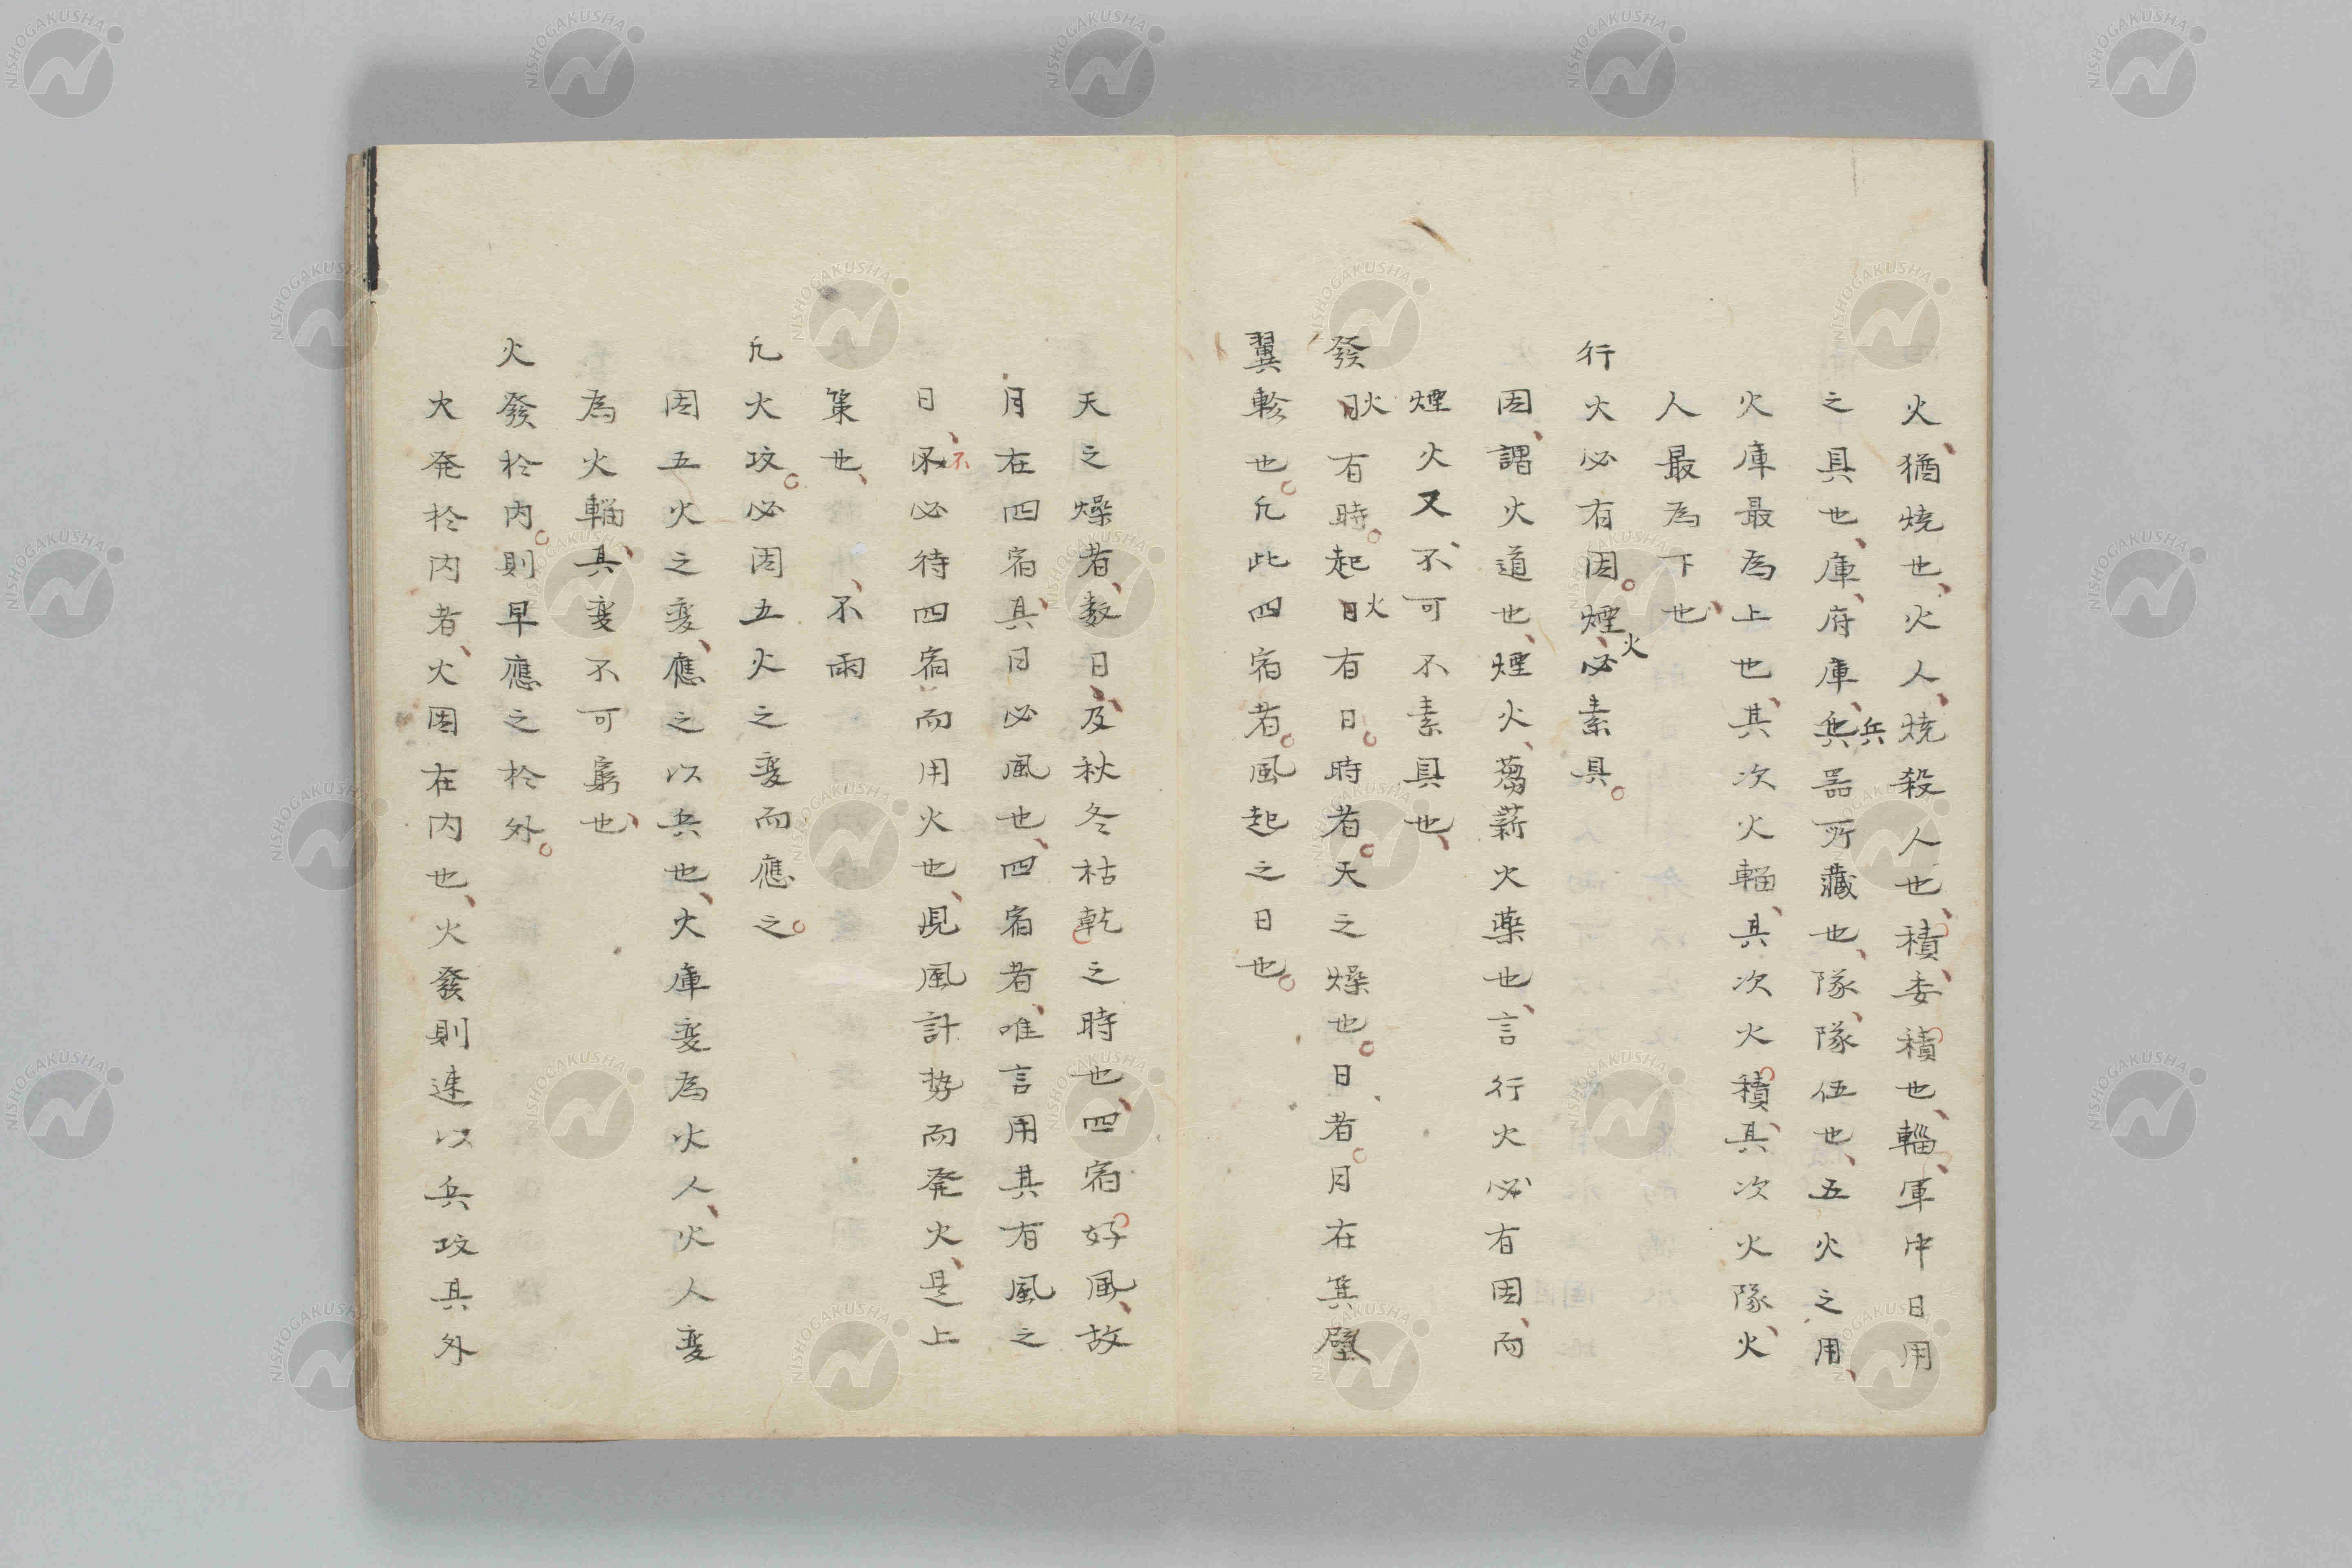 火猶焼也、火人、焼殺人也、積、委積也、輜、軍中日用
之具也、庫、府庫、兵器所藏也、隊、隊伍也、五火之用、
火庫最為上也、其次火輜、其次火積、其次火隊、火
人最為下也、
行火必有因。煙火必素具。
因、謂火道也、煙火、蒭薪火藥也、言行火必有因、而
煙火又不可不素具也、
發火有時。起火有日。時者。天之燥也。日者。月在箕壁
翼軫也。凡此四宿者。風起之日也。
天之燥者、数日、及秋冬枯乾之時也、四宿好風、故
月在四宿、其日必風也、四宿者、唯言用其有風之
日、不必待四宿而用火也、見風計勢而発火、是上
策也、不雨
凡火攻。必因五火之変而應之。
因五火之変、應之以兵也、火庫変為火人、火人変
為火輜、其変不可窮也、
火發於内。則早應之於外。
火発於内者、火因在内也、火發則速以兵攻其外